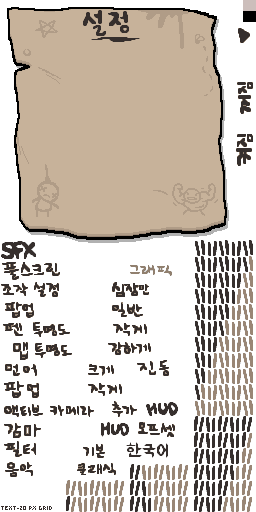 설정
켜짐
꺼짐
SFX
풀스크린 그래픽
조작 설정 심장만
팝업 일반
펜 투명도 작게
맵 투명도 강하게
언어 크게 진동
팝업 작게
액티브 카메라 추가 HUD
감마 HUD 오프셋
필터 기본 한국어
음악 클래식
TEXT-20 PX GRID